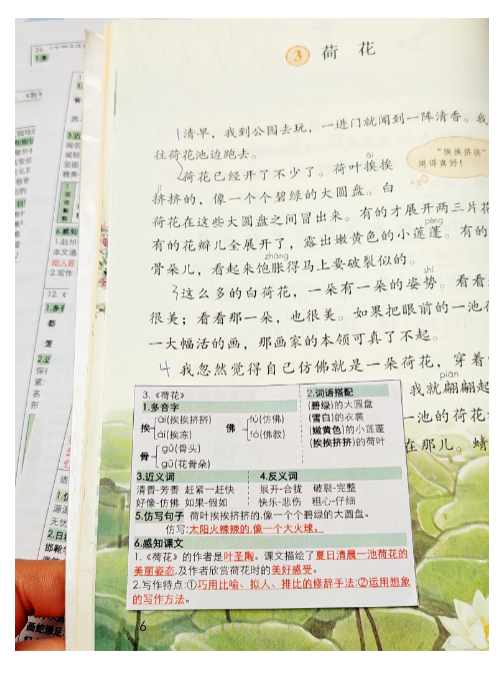 ③ 荷花
1清早，我到公园去玩，一进门就闻到一阵清香。我
往荷花池边跑去。
"挨挨挤挤"
用得真好！
āi
2荷花已经开了不少了。荷叶挨挨
jǐ
挤挤的，像一个个碧绿的大圆盘。白
荷花在这些大圆盘之间冒出来。有的才展开两三片花
péng
有的花瓣儿全展开了，露出嫩黄色的小莲蓬。有的
zhàng
骨朵儿，看起来饱胀得马上要破裂似的。
shì
3这么多的白荷花，一朵有一朵的姿势。看看
很美；看看那一朵，也很美。如果把眼前的一池
一大幅活的画，那画家的本领可真了不起。
4 我忽然觉得自己仿佛就是一朵荷花，穿着
piān
我就翩翩起
一池的荷花
在那儿。蜻
3.《荷花》
1.多音字
挨 āi(挨挨挤挤) ái(挨冻)
佛 fú(仿佛) fó(佛教)
骨 gǔ(骨头) gū(花骨朵)
2.词语搭配
(碧绿)的大圆盘
(雪白)的衣裳
(嫩黄色)的小莲蓬
(挨挨挤挤)的荷叶
3.近义词
清香-芳香 赶紧一赶快
好像-仿佛 如果-假如
4.反义词
展开-合拢 破裂-完整
快乐-悲伤 粗心-仔细
5.仿写句子 荷叶挨挨挤挤的,像一个个碧绿的大圆盘。
仿写:太阳火辣辣的,像一个大火球。
6.感知课文
1.《荷花》的作者是叶圣陶。课文描绘了夏日清晨一池荷花的
美丽姿态,及作者欣赏荷花时的美好感受。
2.写作特点:①巧用比喻、拟人、排比的修辞手法;②运用想象
的写作方法。
6